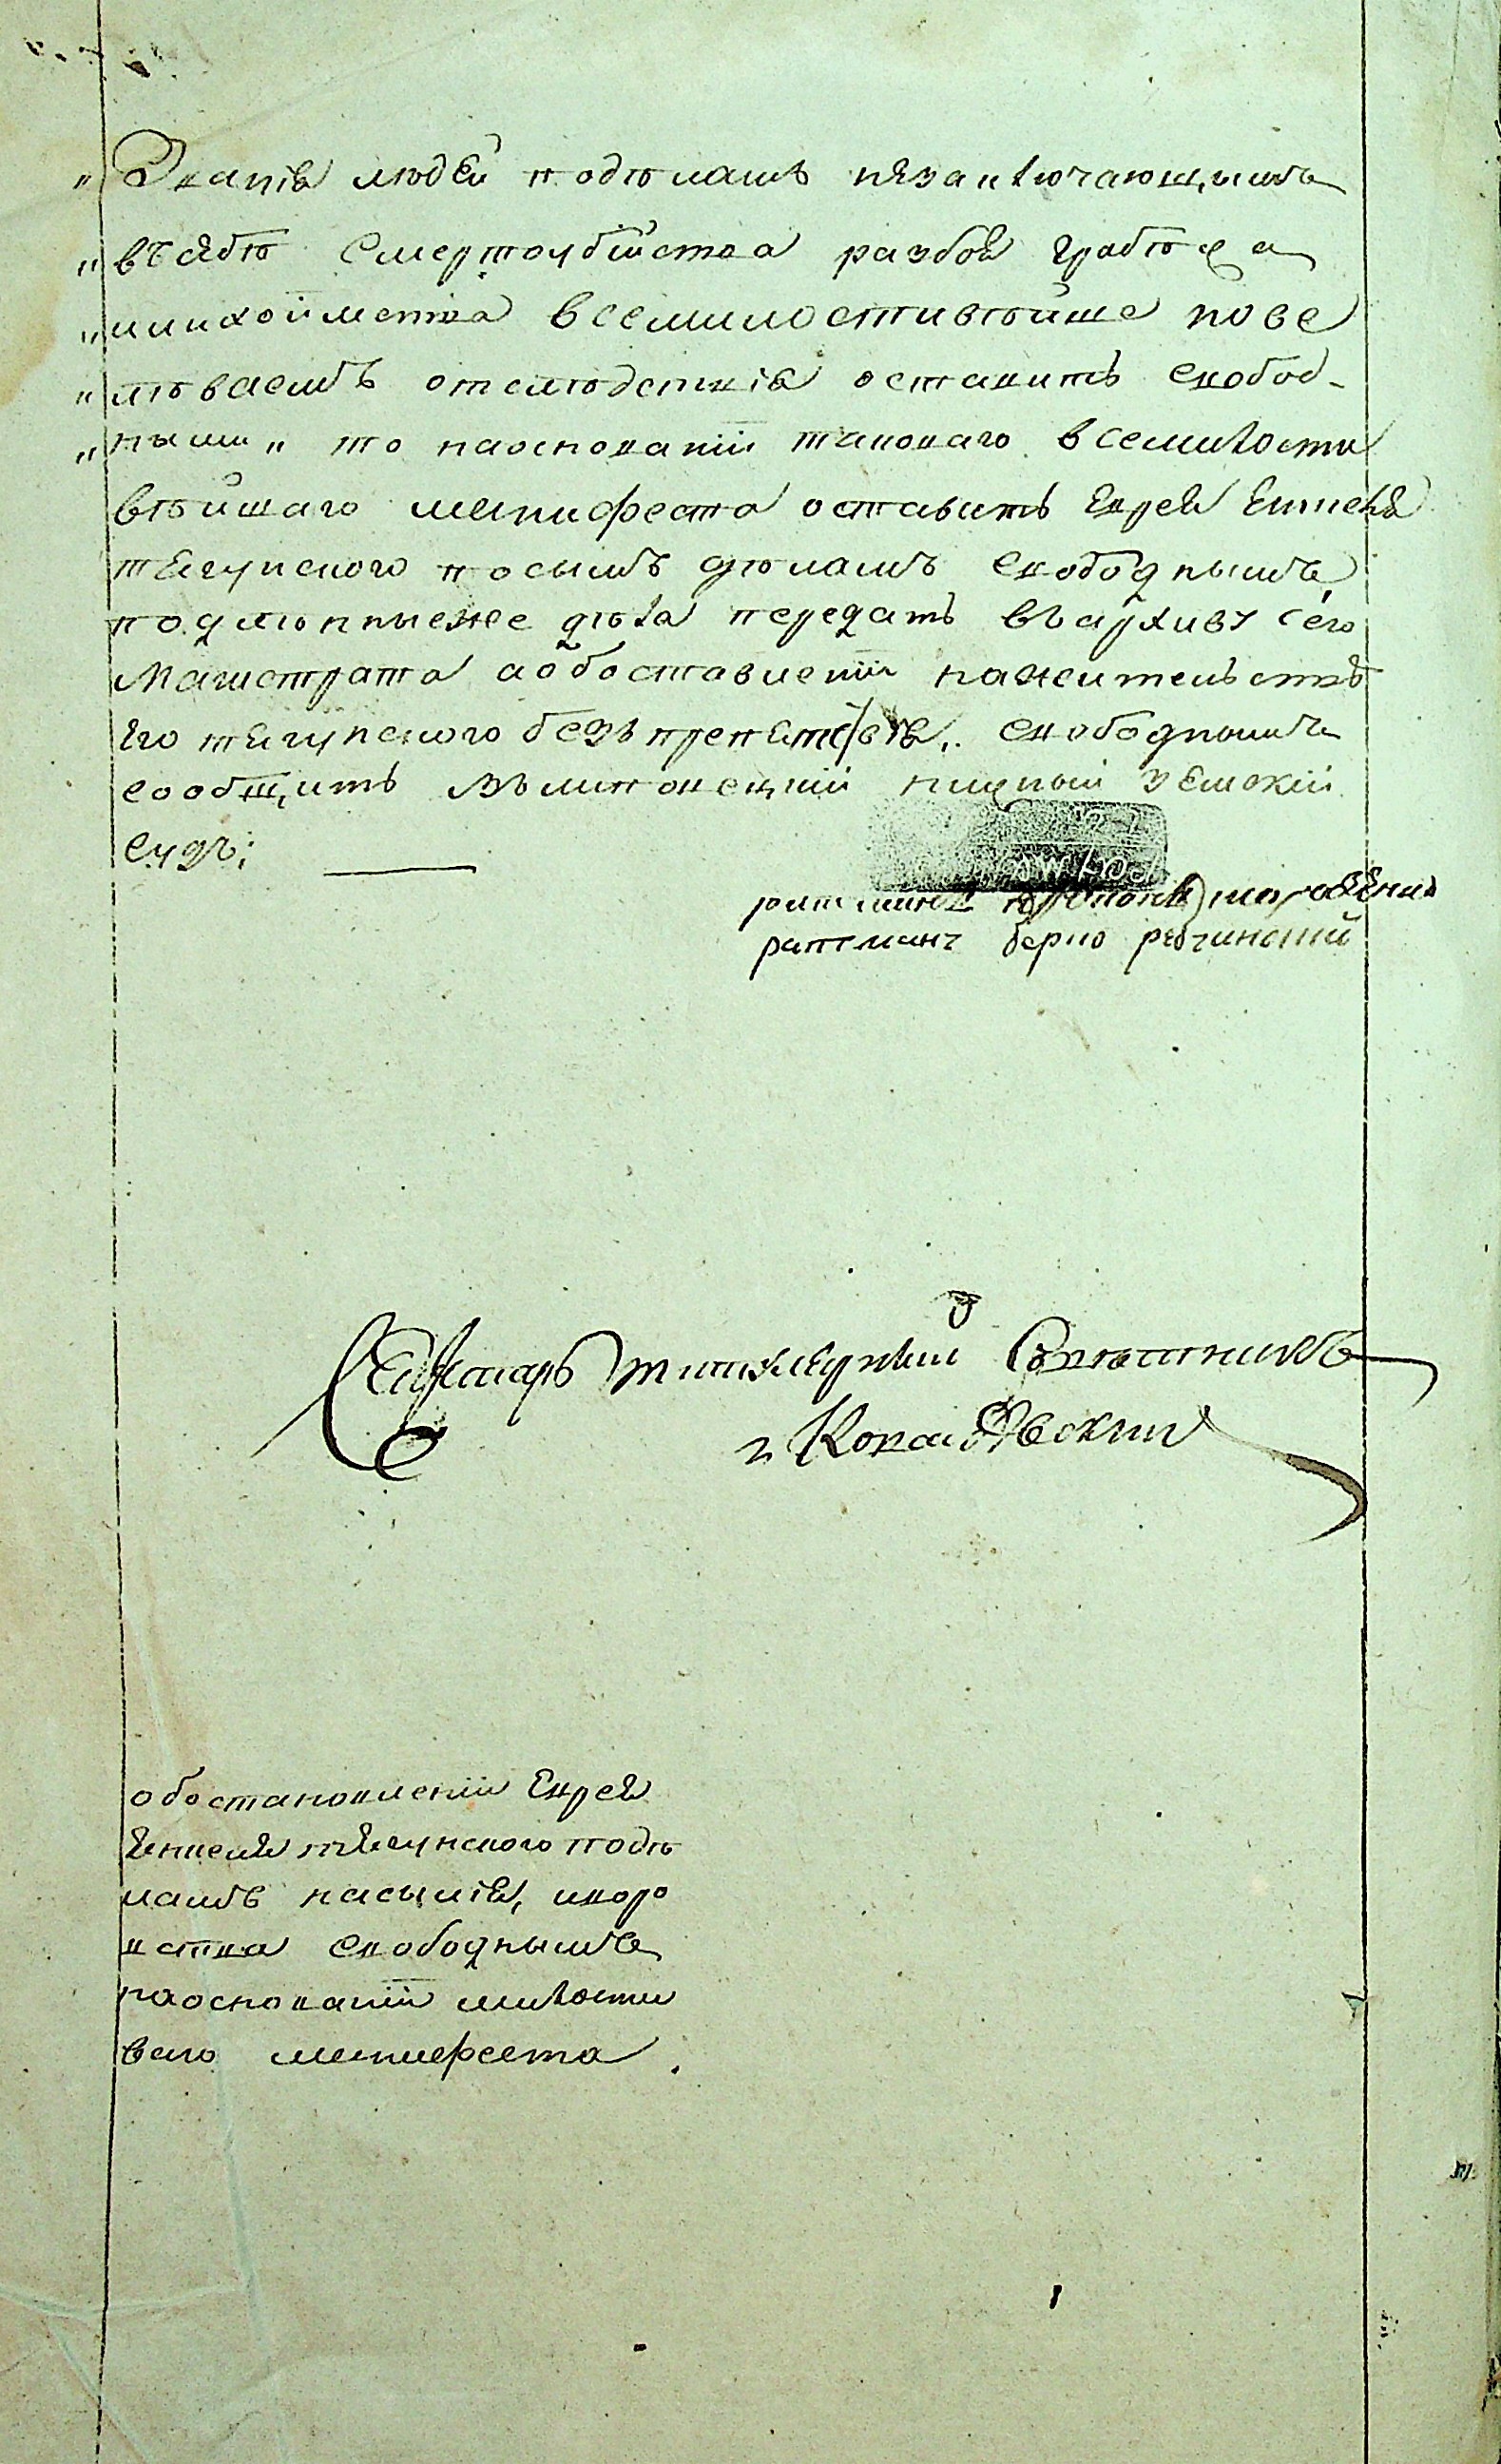 „Званія людей подѣламъ незаключающимъ
„въсебѣ Смертоубійства разбоя грабежа
„илихоимства всемилостивѣйше пове
„лѣваемъ отслѣдствія оставить свобод-
„ными„ то наоснованіи таковаго всемилости
вѣйшаго манифеста оставить Еврея Енкеля
тягунского посымъ дѣламъ свободнымъ
подлѣнныеже дѣла передать въархивъ сего
Магистрата аобоставленіи нажительствѣ
его тягунского безъ препятствія, свободнымъ
сообщить Влиповецкій нижный земскій
Судъ;
ратманъ
ратманъ берко
Секретарь титулярный Совѣтникъ
обостановленіи Еврея
Янкеля тягунского подѣ
ламъ насылія, иворо
вства свободнымъ
наоснованіи милости
ваго манифеста.